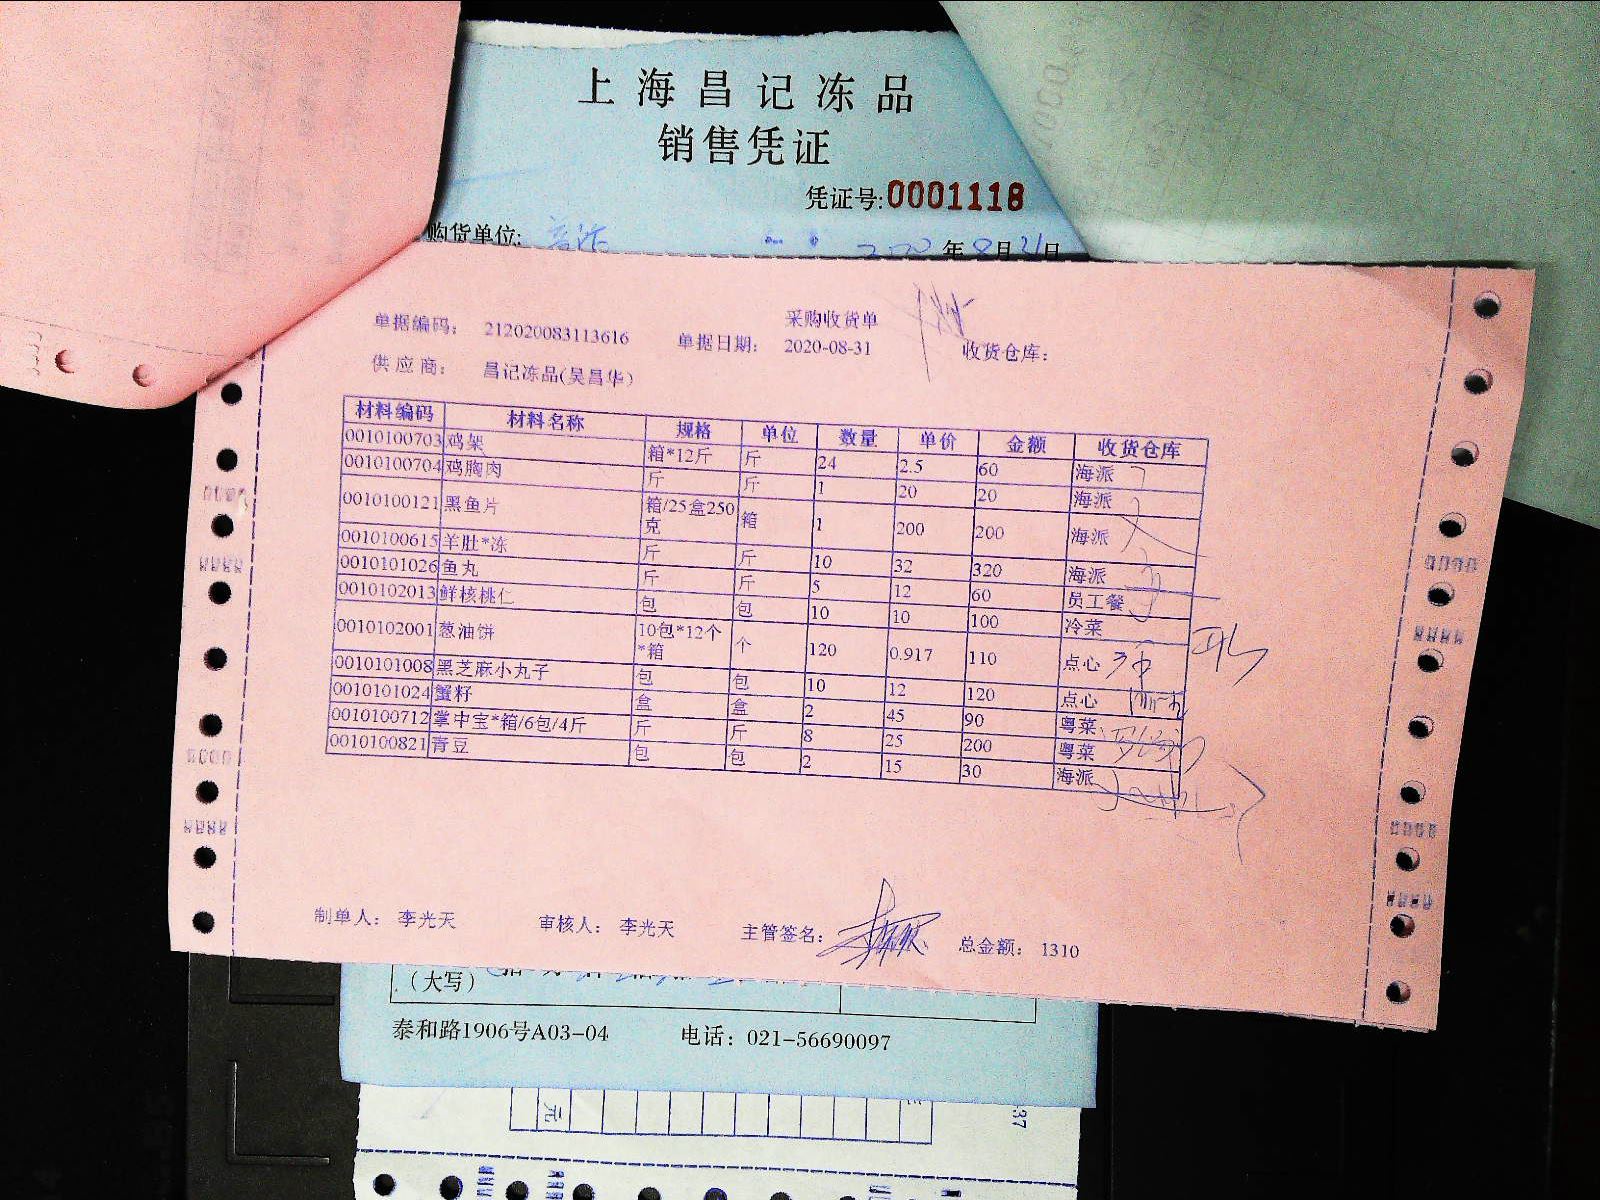 上海昌记冻品
销售凭证
凭证号:0001118
购货单位:
年8月31日
采购收货单
单据编码: 212020083113616 单据日期: 2020-08-31 收货仓库:
供应商: 昌记冻品(吴昌华)
材料编码 材料名称 规格 单位 数量 单价 金额 收货仓库
0010100703 鸡架 箱*12斤 斤 24 2.5 60 海派
0010100704 鸡胸肉 斤 斤 1 20 20 海派
0010100121 黑鱼片 箱/25盒250克 箱 1 200 200 海派
0010100615 羊肚*冻 斤 斤 10 32 320 海派
0010101026 鱼丸 斤 斤 5 12 60 员工餐
0010102013 鲜核桃仁 包 包 10 10 100 冷菜
0010102001 葱油饼 10包*12个*箱 个 120 0.917 110 点心
0010101008 黑芝麻小丸子 包 包 10 12 120 点心
0010101024 蟹籽 盒 盒 2 45 90 粤菜
0010100712 掌中宝*箱/6包/4斤 斤 斤 8 25 200 粤菜
0010100821 青豆 包 包 2 15 30 海派
制单人: 李光天 审核人: 李光天 主管签名: 总金额: 1310
(大写)
泰和路1906号A03-04 电话: 021-56690097
元
:37